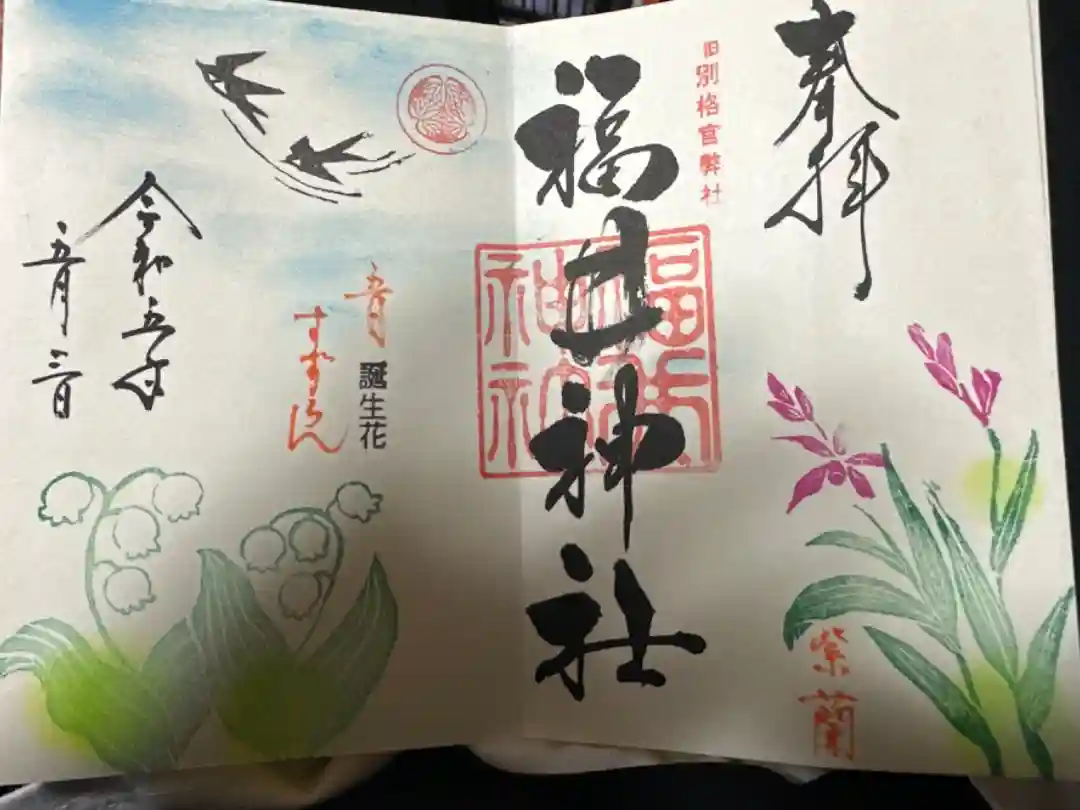 奉拝
旧別格官弊社
福井神社
紫蘭
五月
誕生花
すずらん
令和五年
五月三日